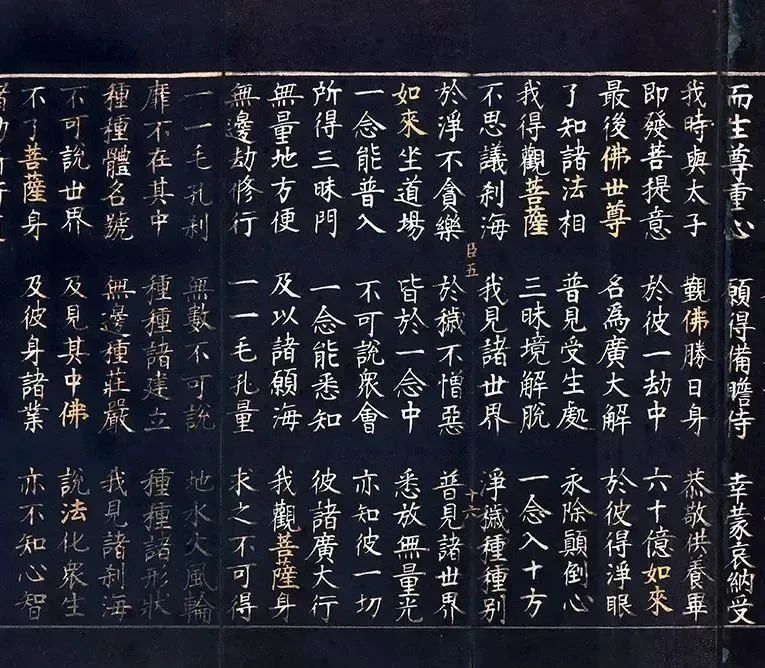 而生尊重心 願得備瞻侍 幸蒙哀納受
我時與太子 觀佛勝日身 恭敬供養畢
即發菩提意 於彼一劫中 六十億如來
最後佛世尊 名為廣大解 於彼得淨眼
了知諸法相 普見受生處 永除顛倒心
我得觀菩薩 三昧境解脫 一念入十方
不思議刹海 我見諸世界 淨穢種種別
臣五 十六
於淨不貪樂 於穢不憎惡 普見諸世界
如來坐道場 皆於一念中 悉放無量光
一念能普入 不可說衆會 亦知彼一切
所得三昧門 一念能悉知 彼諸廣大行
無量地方便 及以諸願海 我觀菩薩身
無邊劫修行 一一毛孔量 求之不可得
一一毛孔刹 無數不可說 地水火風輪
靡不在其中 種種諸建立 種種諸形狀
種種體名號 無邊種莊嚴 我見諸刹海
不可說世界 及見其中佛 說法化衆生
不了菩薩身 及彼身諸業 亦不知心智